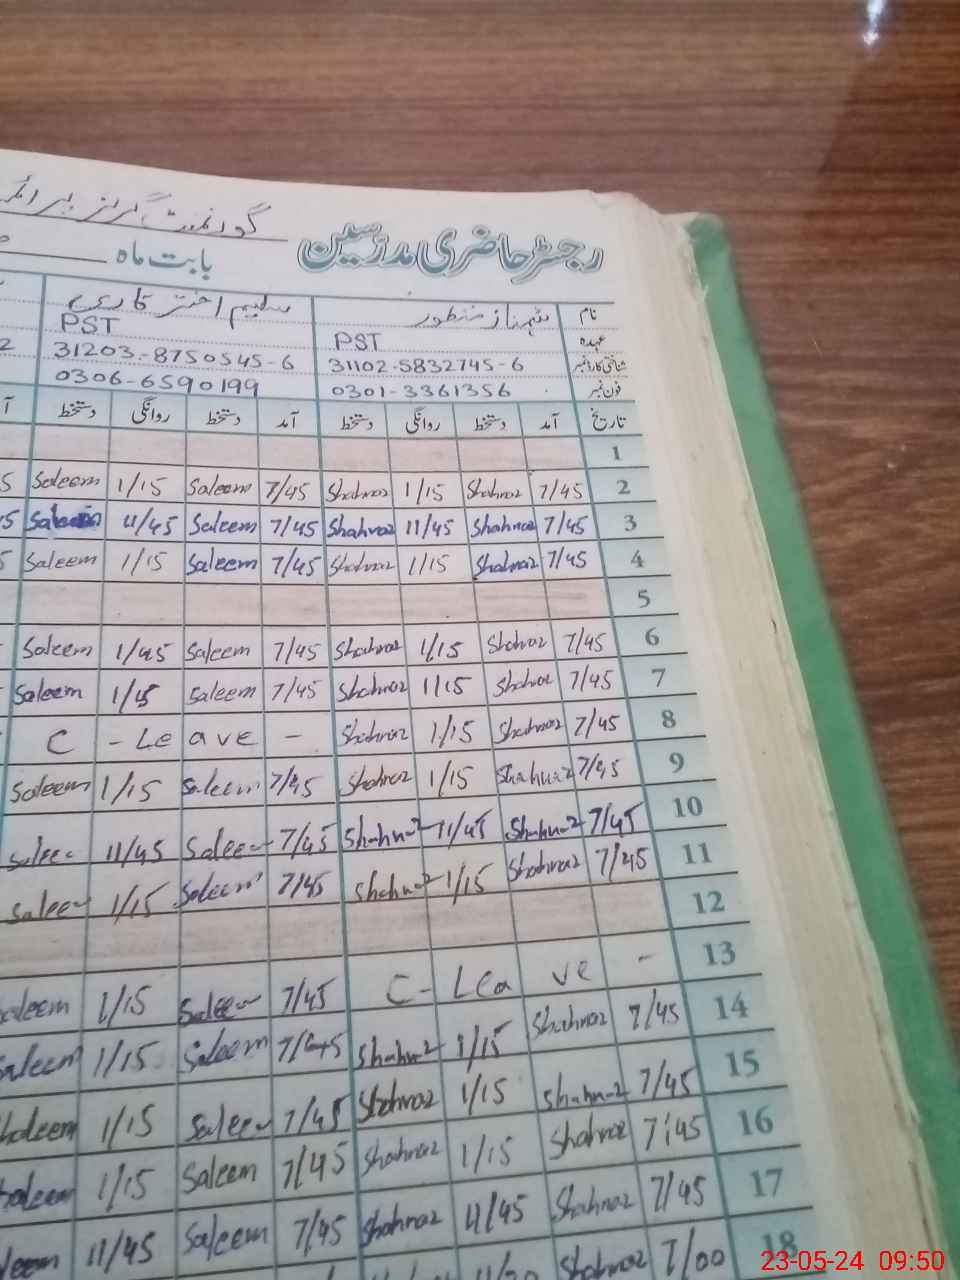 گورنمنٹ گرلز پرائمر
رجسٹر حاضری مدرسین
بابت ماہ
نام شہناز منظور سلیم اختر قاری
عہدہ PST PST
شناختی کارڈ نمبر 31102-5832745-6 31203-8750545-6 2
فون نمبر 0301-3361356 0306-6590199
تاریخ آمد دستخط روانگی دستخط آمد دستخط روانگی دستخط
1
Saleem 1/15 Saleem 7/45 Shahnaz 1/15 Shahnaz 7/45 2
Saleem 11/45 Saleem 7/45 Shahnaz 11/45 Shahnaz 7/45 3
Saleem 1/15 Saleem 7/45 Shahnaz 1/15 Shahnaz 7/45 4
5
Saleem 1/45 Saleem 7/45 Shahnaz 1/15 Shahnaz 7/45 6
Saleem 1/15 Saleem 7/45 Shahnaz 1/15 Shahnaz 7/45 7
C - Leave - Shahnaz 1/15 Shahnaz 7/45 8
Saleem 1/15 Saleem 7/45 Shahnaz 1/15 Shahnaz 7/45 9
Saleem 11/45 Saleem 7/45 Shahnaz 11/45 Shahnaz 7/45 10
Saleem 1/15 Saleem 7/45 Shahnaz 1/15 Shahnaz 7/45 11
12
Saleem 1/15 Saleem 7/45 C - Leave - 13
Saleem 1/15 Saleem 7/45 Shahnaz 1/15 Shahnaz 7/45 14
Saleem 1/15 Saleem 7/45 Shahnaz 1/15 Shahnaz 7/45 15
Saleem 1/15 Saleem 7/45 Shahnaz 1/15 Shahnaz 7:45 16
Saleem 11/45 Saleem 7/45 Shahnaz 11/45 Shahnaz 7/45 17
Shahnaz 7/00 18
23-05-24 09:50